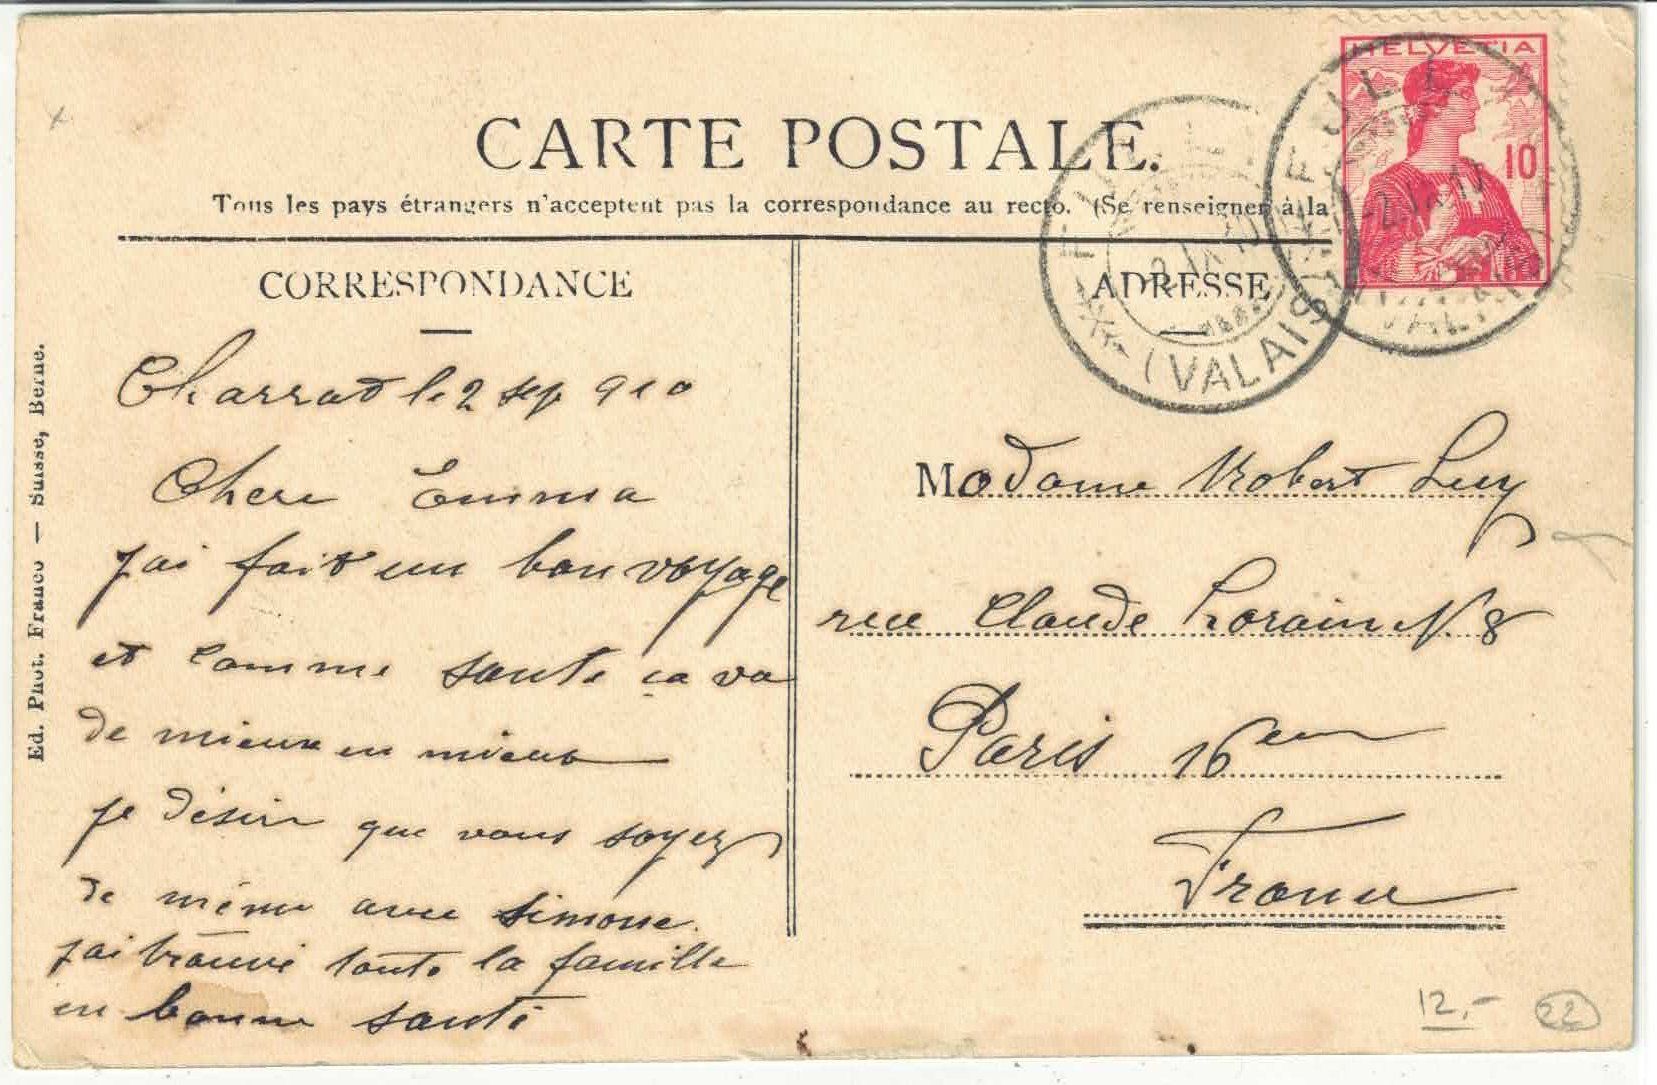 CARTE POSTALE.
Tous les pays étrangers n'acceptent pas la correspondance au recto. (Se renseigner à la
CORRESPONDANCE
Charrat le 2 sep 910
Chere Emma
j'ai fait un bon voyage
et comme santé ça va
de mieux en mieux
je désir que vous soyez
de même avec Simone.
j'ai trouvé toute la famille
en bonne santé
Ed. Phot. Franco — Suisse, Berne.
HELVETIA
10
(VALAIS)
ADRESSE
Madame Robert Luy
rue Claude Lorain N. 8
Paris 16em
France
12.-
22